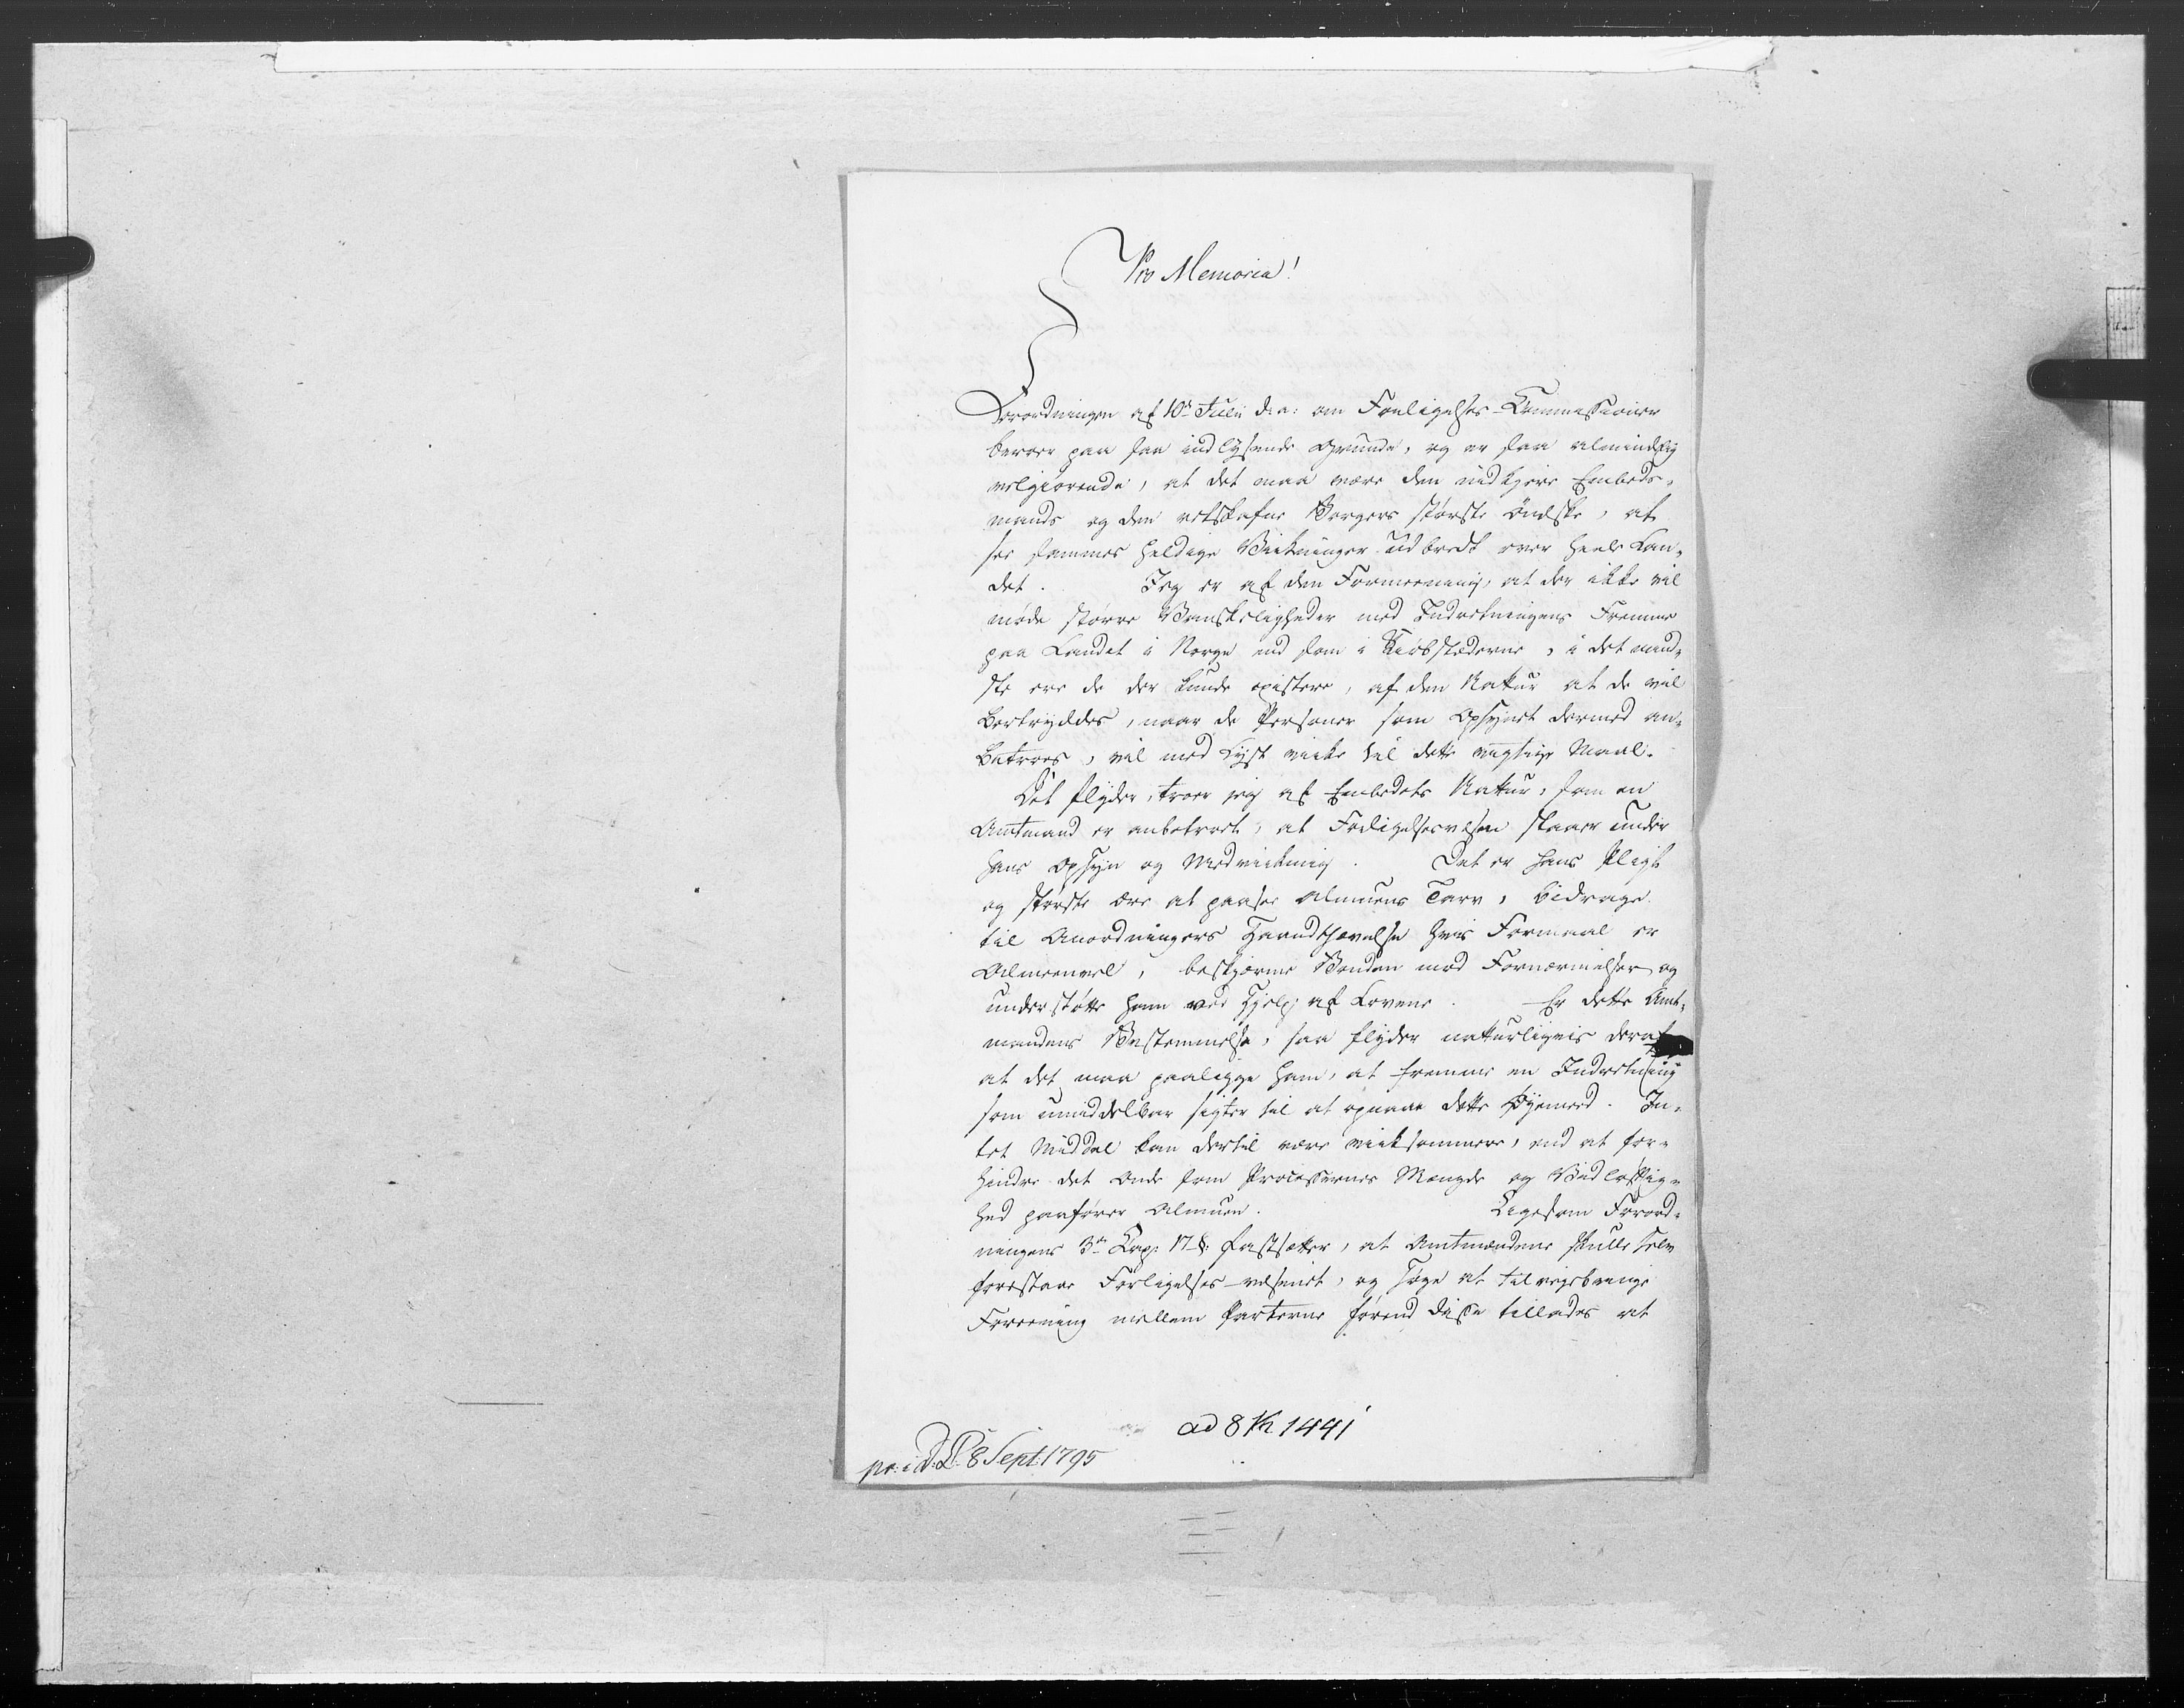 Pro Memoria!
Forordningen af 10de Julii d: a: om Forligelses-Commissioner
beroer paa saa indlysende Grunde, og er saa almindelig
velgiørende, at det maa være den nidkjere Embeds-
mands og den retskafne Borgers største Ønske, at
see sammes heldige Virkninger udbredt over heele Lan-
det. Jeg er af den Formeening, at der ikke vil
møde større Vanskeligheder med Indretningens Fremme
paa Landet i Norge end som i Kiøbstæderne, i det mind-
ste ere de der kunde existere, af den Natur at de vil
bortryddes, naar de Personer som Opsynet dermed an-
betroes, vil med Lyst virke til dette vigtige Maal.
Det flyder, troer jeg af Embedets Natur, som en
Amtmand er anbetroet, at Forligelsesvæsen staaer under
hans Opsyn og Medvirkning. Det er hans Pligt
og største Ære at paasee Almuens Tarv, bidrage
til Anordningers Haandthævelse hvis Formaal er
Almeenvel, beskjærme Bonden mod Fornærmelser og
understøtte ham ved Hjelp af Lovene. Er dette Amt-
mandens Bestemmelse, saa flyder naturligvis deraf
at det maa paaligge ham, at fremme en Indretning
som umiddelbar sigter til at opnaae dette Øyemeed. In-
tet Middel kan dertil være virksommere, end at for-
hindre det Onde som Processernes Mængde og Vidløftig-
hed paafører Almuen. Ligesom Forord-
ningens 3de Cap: 17 §. fastsætter, at Amtmændene skulle selv
forestaae Forligelses-væsenet, og søge at tilvejebringe
Foreening mellem Parterne førend disse tillades at
ad 8 1441
pr: i D: C: 8 Sept: 1795